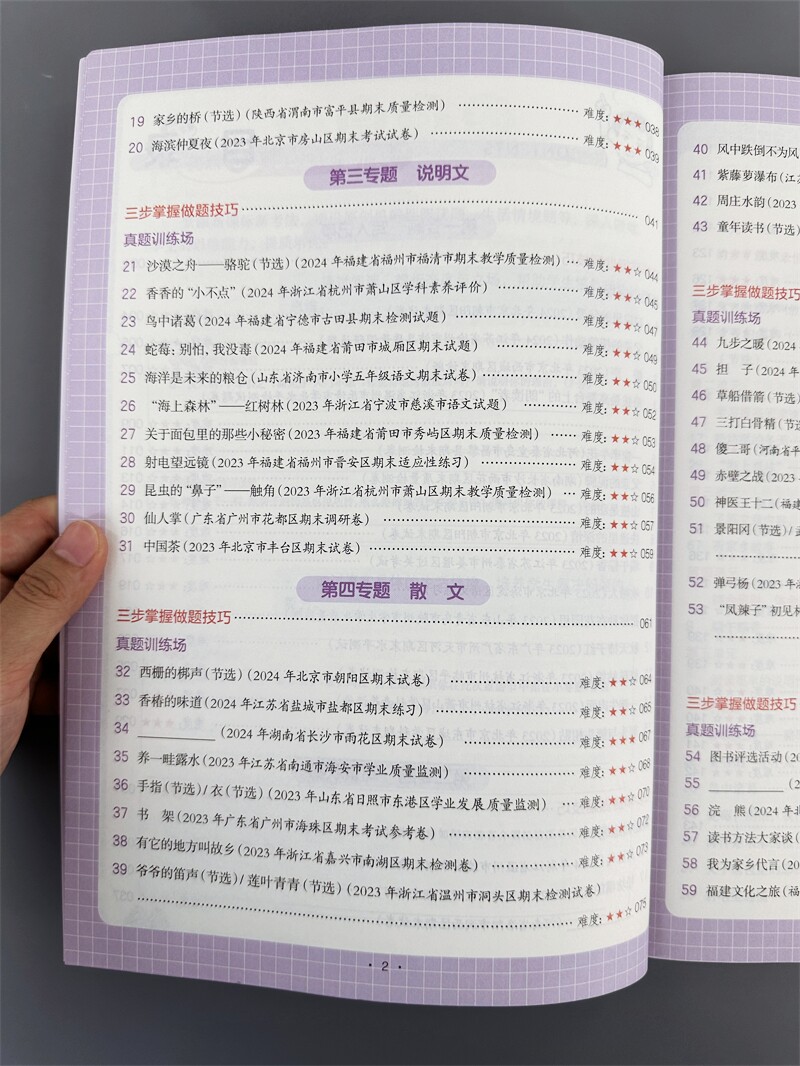 19 家乡的桥(节选)(陕西省渭南市富平县期末质量检测) …… 难度:★★★ 038
20 海滨仲夏夜(2023 年北京市房山区期末考试试卷) …… 难度:★★★ 039
第三专题 说明文
三步掌握做题技巧 …… 041
真题训练场
21 沙漠之舟——骆驼(节选)(2024 年福建省福州市福清市期末教学质量检测) … 难度:★★☆ 044
22 香香的“小不点”(2024 年浙江省杭州市萧山区学科素养评价) …… 难度:★★☆ 045
23 鸟中诸葛(2024 年福建省宁德市古田县期末检测试题) …… 难度:★★☆ 047
24 蛇莓:别怕,我没毒(2024 年福建省莆田市城厢区期末试题) …… 难度:★★☆ 049
25 海洋是未来的粮仓(山东省济南市小学五年级语文期末试卷) …… 难度:★★☆ 050
26 “海上森林”——红树林(2023 年浙江省宁波市慈溪市语文试题) …… 难度:★★☆ 052
27 关于面包里的那些小秘密(2023 年福建省莆田市秀屿区期末质量检测) …… 难度:★★☆ 053
28 射电望远镜(2023 年福建省福州市晋安区期末适应性练习) …… 难度:★★☆ 054
29 昆虫的“鼻子”——触角(2023 年浙江省杭州市萧山区期末教学质量检测) … 难度:★★☆ 056
30 仙人掌(广东省广州市花都区期末调研卷) …… 难度:★★☆ 057
31 中国茶(2023 年北京市丰台区期末试卷) …… 难度:★★☆ 059
第四专题 散 文
三步掌握做题技巧 …… 061
真题训练场
32 西栅的梆声(节选)(2024 年北京市朝阳区期末试卷) …… 难度:★★☆ 064
33 香椿的味道(2024 年江苏省盐城市盐都区期末练习) …… 难度:★★☆ 065
34 ________(2024 年湖南省长沙市雨花区期末试卷) …… 难度:★★★ 067
35 养一畦露水(2023 年江苏省南通市海安市学业质量监测) …… 难度:★★☆ 068
36 手指(节选)/ 衣(节选)(2023 年山东省日照市东港区学业发展质量监测) … 难度:★★☆ 070
37 书 架(2023 年广东省广州市海珠区期末考试参考卷) …… 难度:★★☆ 072
38 有它的地方叫故乡(2023 年浙江省嘉兴市南湖区期末检测卷) …… 难度:★★☆ 073
39 爷爷的笛声(节选)/ 莲叶青青(节选)(2023 年浙江省温州市洞头区期末检测试卷)
…… 难度:★★☆ 075
· 2 ·
40 风中跌倒不为风
41 紫藤萝瀑布(江
42 周庄水韵(2023
43 童年读书(节选)
三步掌握做题技巧
真题训练场
44 九步之暖(2024
45 担 子(2024 年
46 草船借箭(节选)
47 三打白骨精(节选
48 傻二哥(河南省平
49 赤壁之战(2023
50 神医王十二(福建
51 景阳冈(节选)/
52 弹弓杨(2023 年
53 “凤辣子”初见林
三步掌握做题技巧
真题训练场
54 图书评选活动(20
55 ________(2
56 浣 熊(2024 年北
57 读书方法大家谈(
58 我为家乡代言(20
59 福建文化之旅(福